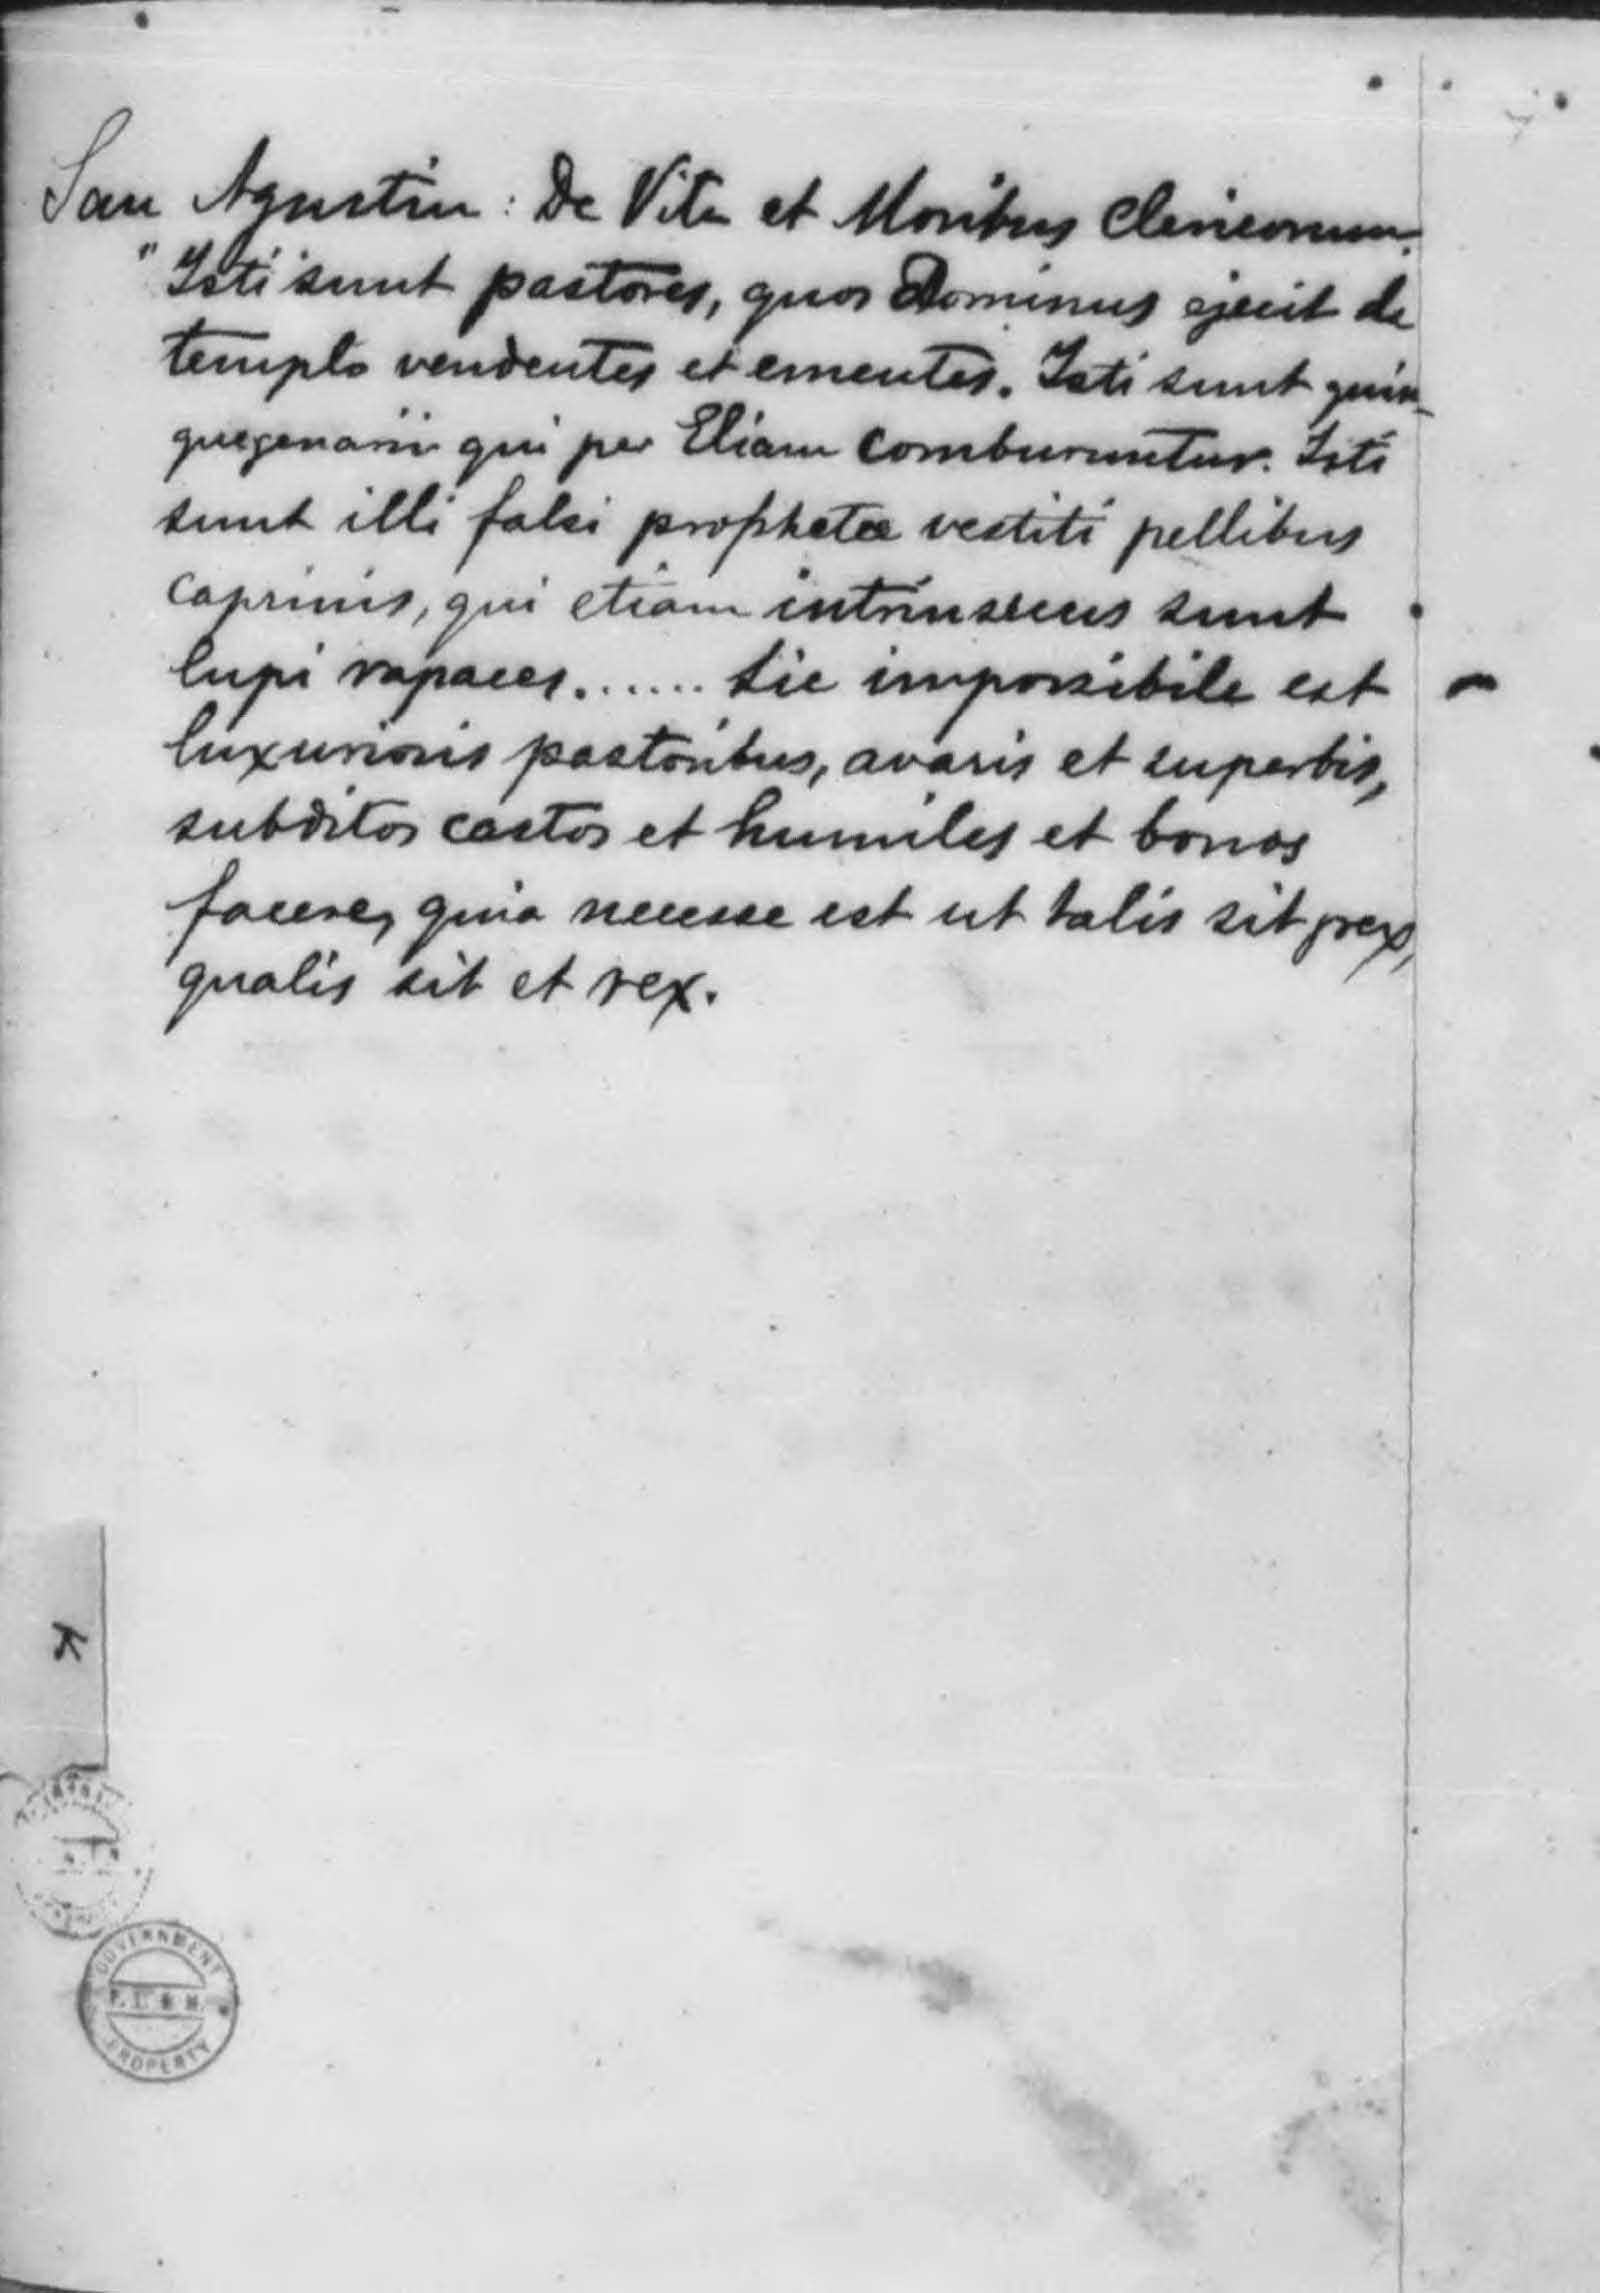 San Agustin: De Vita et Moribus Clericorum.
"Isti sunt pastores, quos Dominus ejecit de
templo vendentes et ementes. Isti sunt quin-
quegenarii qui per Eliam comburuntur. Isti
sunt illi falsi prophetæ vestiti pellibus
caprinis, qui etiam intrinsecus sunt
lupi rapaces....... Sic impossibile est
luxuriosis pastoribus, avaris et superbis,
subditos castos et humiles et bonos
facere, quia necesse est ut talis sit grex,
qualis sit et rex.
K
GOVERNMENT
PROPERTY